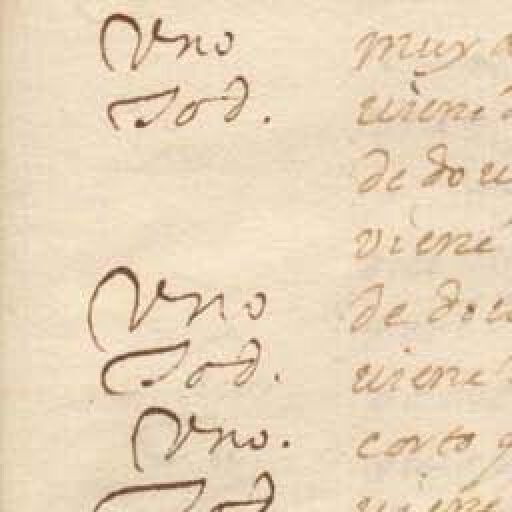 Vno muy
Tod. viene
de do
viene
Vno de do
Tod. viene
Vno. corto
Tod. viene